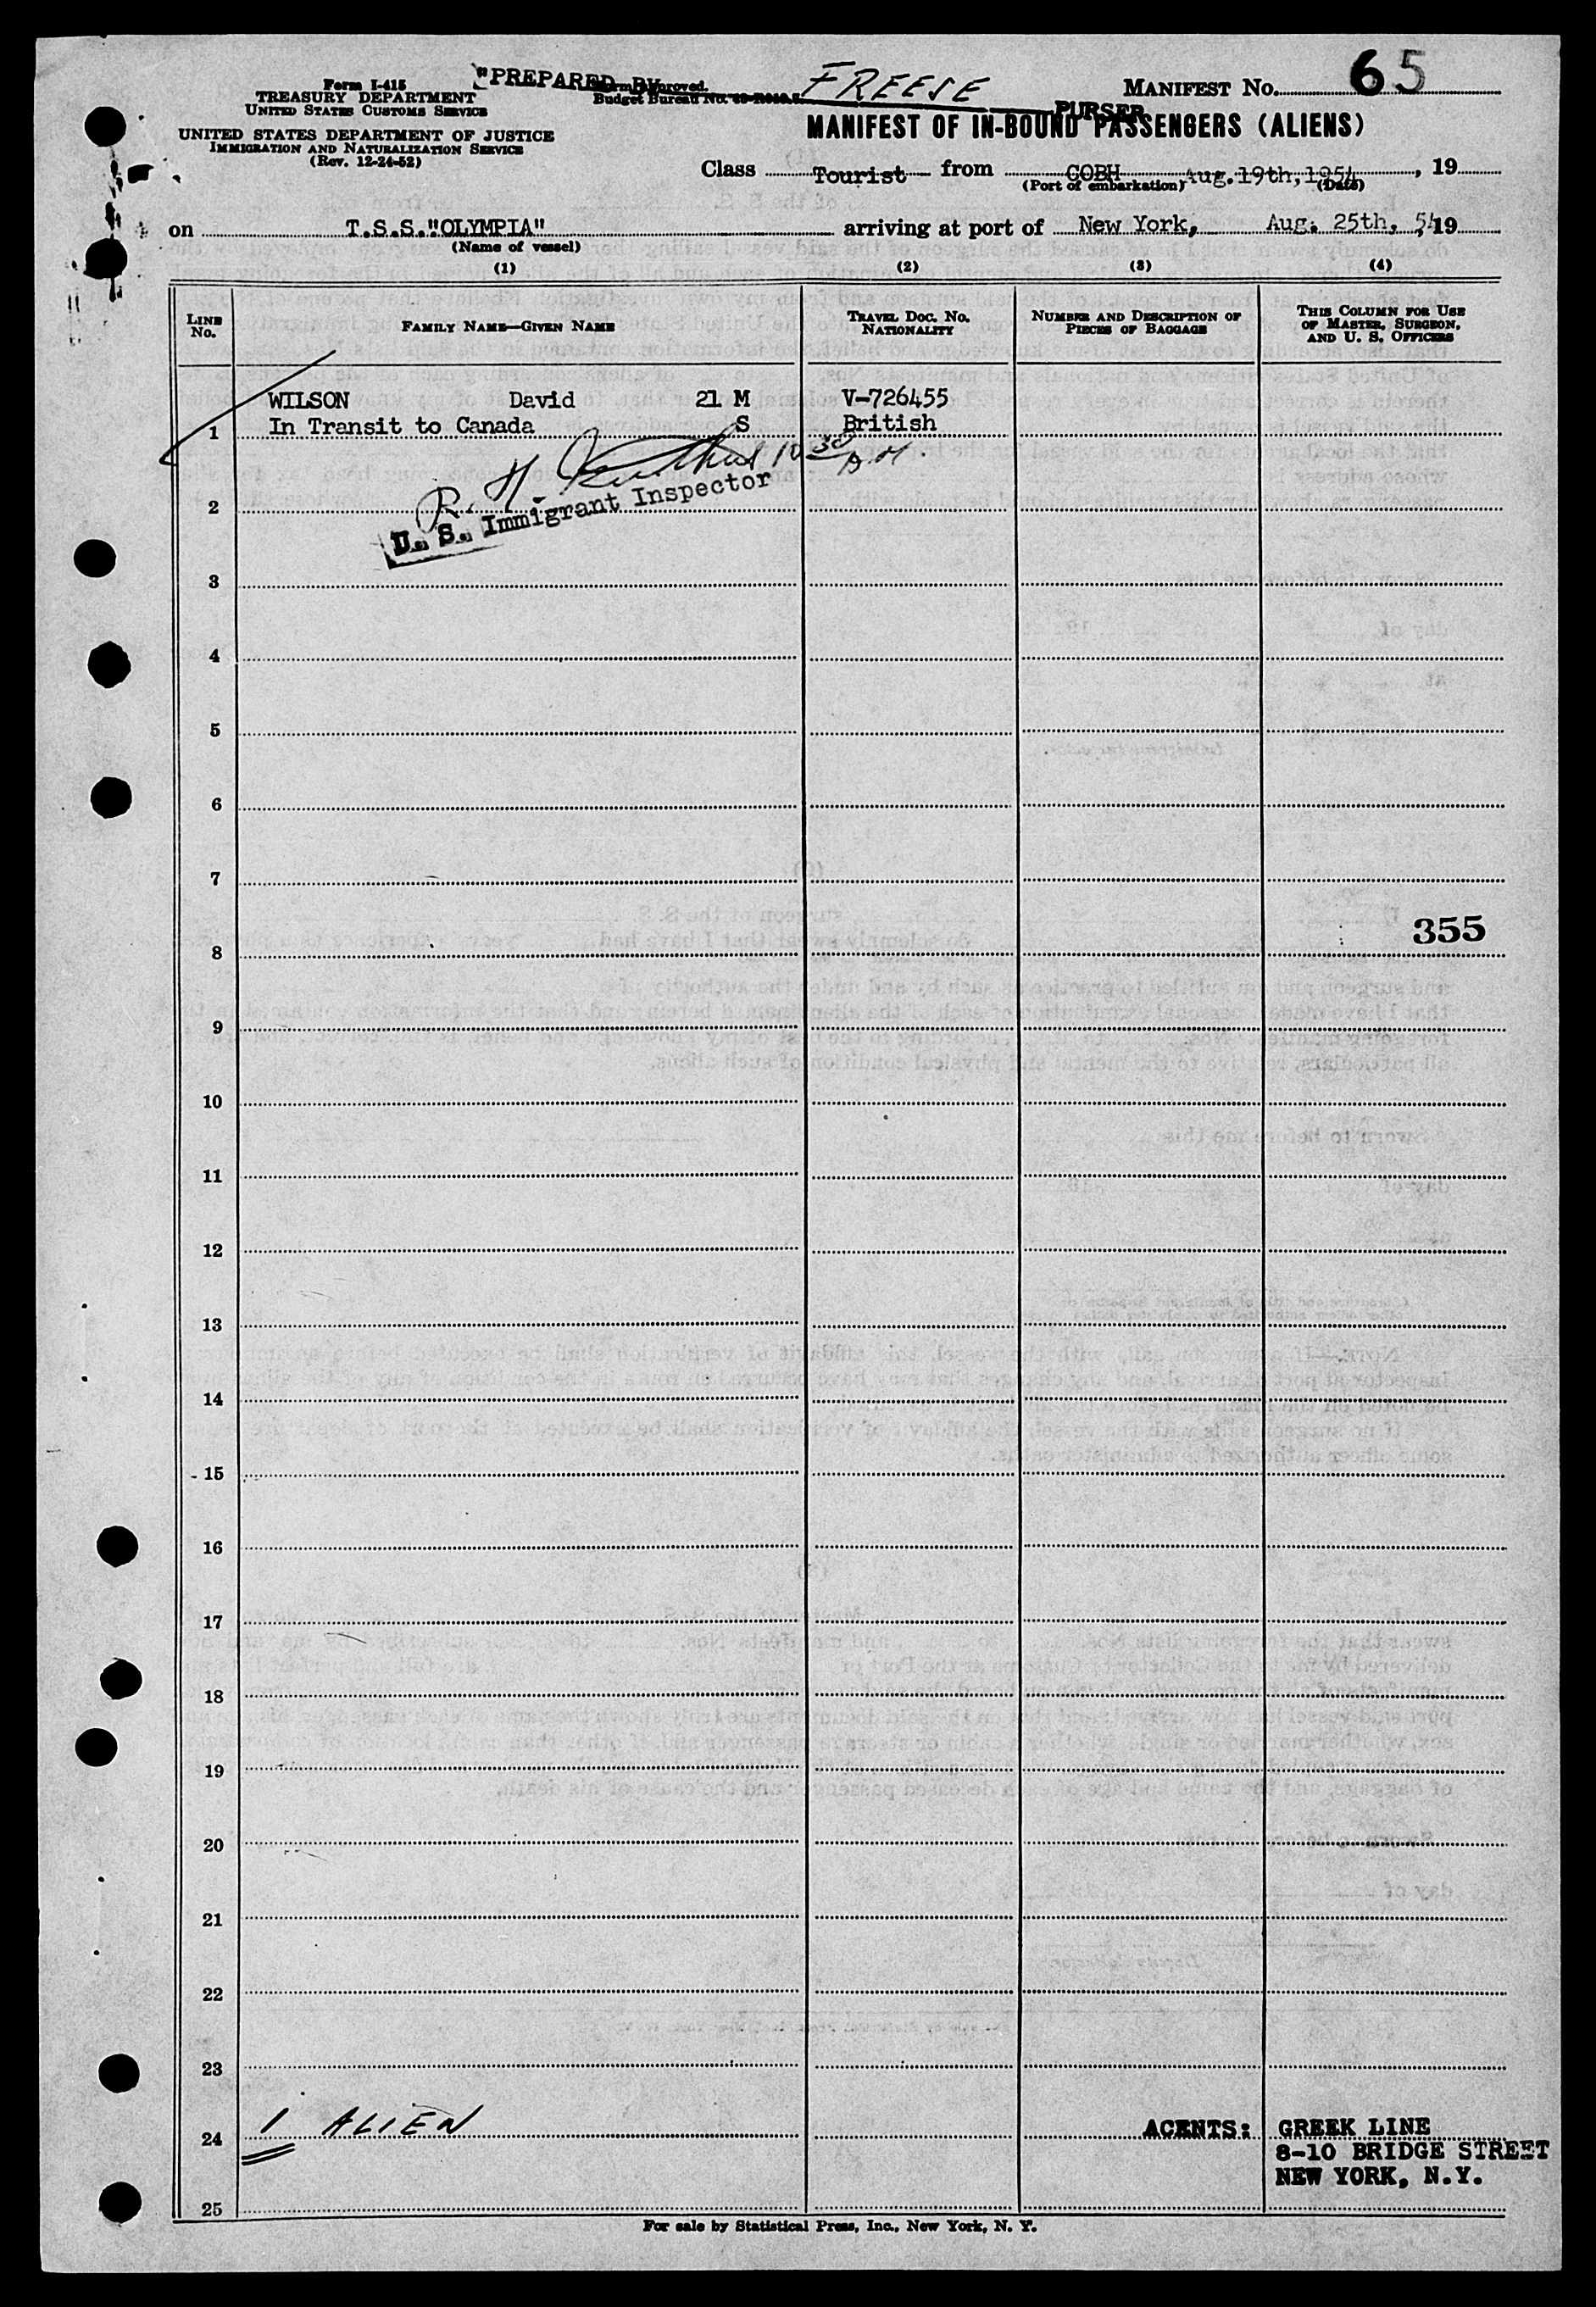 Form I-415
TREASURY DEPARTMENT
UNITED STATES CUSTOMS SERVICE
UNITED STATES DEPARTMENT OF JUSTICE
IMMIGRATION AND NATURALIZATION SERVICE
(Rev. 12-24-52)
"PREPARED BY FREESE PURSER
Form approved.
Budget Bureau No.
MANIFEST NO. 65
MANIFEST OF IN-BOUND PASSENGERS (ALIENS)
Class Tourist from COBH Aug.19th,1954, 19
(Port of embarkation) (Date)
on T.S.S."OLYMPIA" arriving at port of New York, Aug. 25th, 54, 19
(Name of vessel)
(1) (2) (3) (4)
LINE NO.
FAMILY NAME—GIVEN NAME
TRAVEL DOC. NO. NATIONALITY
NUMBER AND DESCRIPTION OF PIECES OF BAGGAGE
THIS COLUMN FOR USE OF MASTER, SURGEON, AND U. S. OFFICERS
WILSON David 21 M V-726455
1 In Transit to Canada S British
R. H. 10 30 A.M
2
U. S. Immigrant Inspector
3
4
5
6
7
355
8
9
10
11
12
13
14
15
16
17
18
19
20
21
22
23
24 1 ALIEN AGENTS: GREEK LINE
8-10 BRIDGE STREET
NEW YORK, N.Y.
25
For sale by Statistical Press, Inc., New York, N. Y.